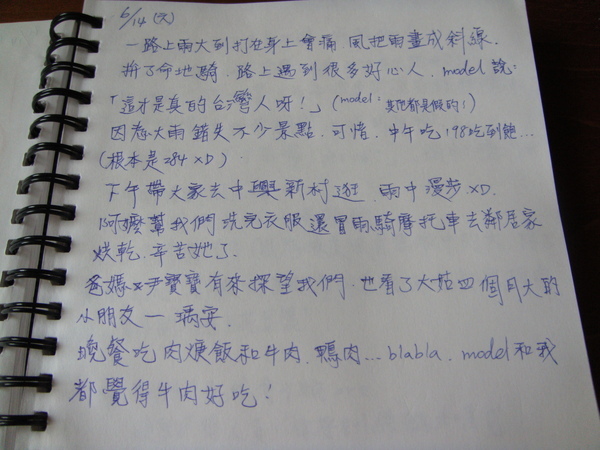 6/14 (六)
一路上雨大到打在身上會痛, 風把雨畫成斜線.
拚了命地騎. 路上遇到很多好心人. model 說:
「這才是真的台灣人呀!」(model: 其他都是假的!)
因為大雨錯失不少景點. 可惜. 中午吃198吃到飽...
(根本是284 XD).
下午帶大家去中興新村逛. 雨中漫步XD.
阿嬤幫我們洗完衣服還冒雨騎摩托車去鄰居家
烘乾. 辛苦她了.
爸媽&尹寶寶有來探望我們. 也看了大姑四個月大的
小朋友一 安.
晚餐吃肉焿飯和牛肉. 鴨肉... blabla. model和我
都覺得牛肉好吃!